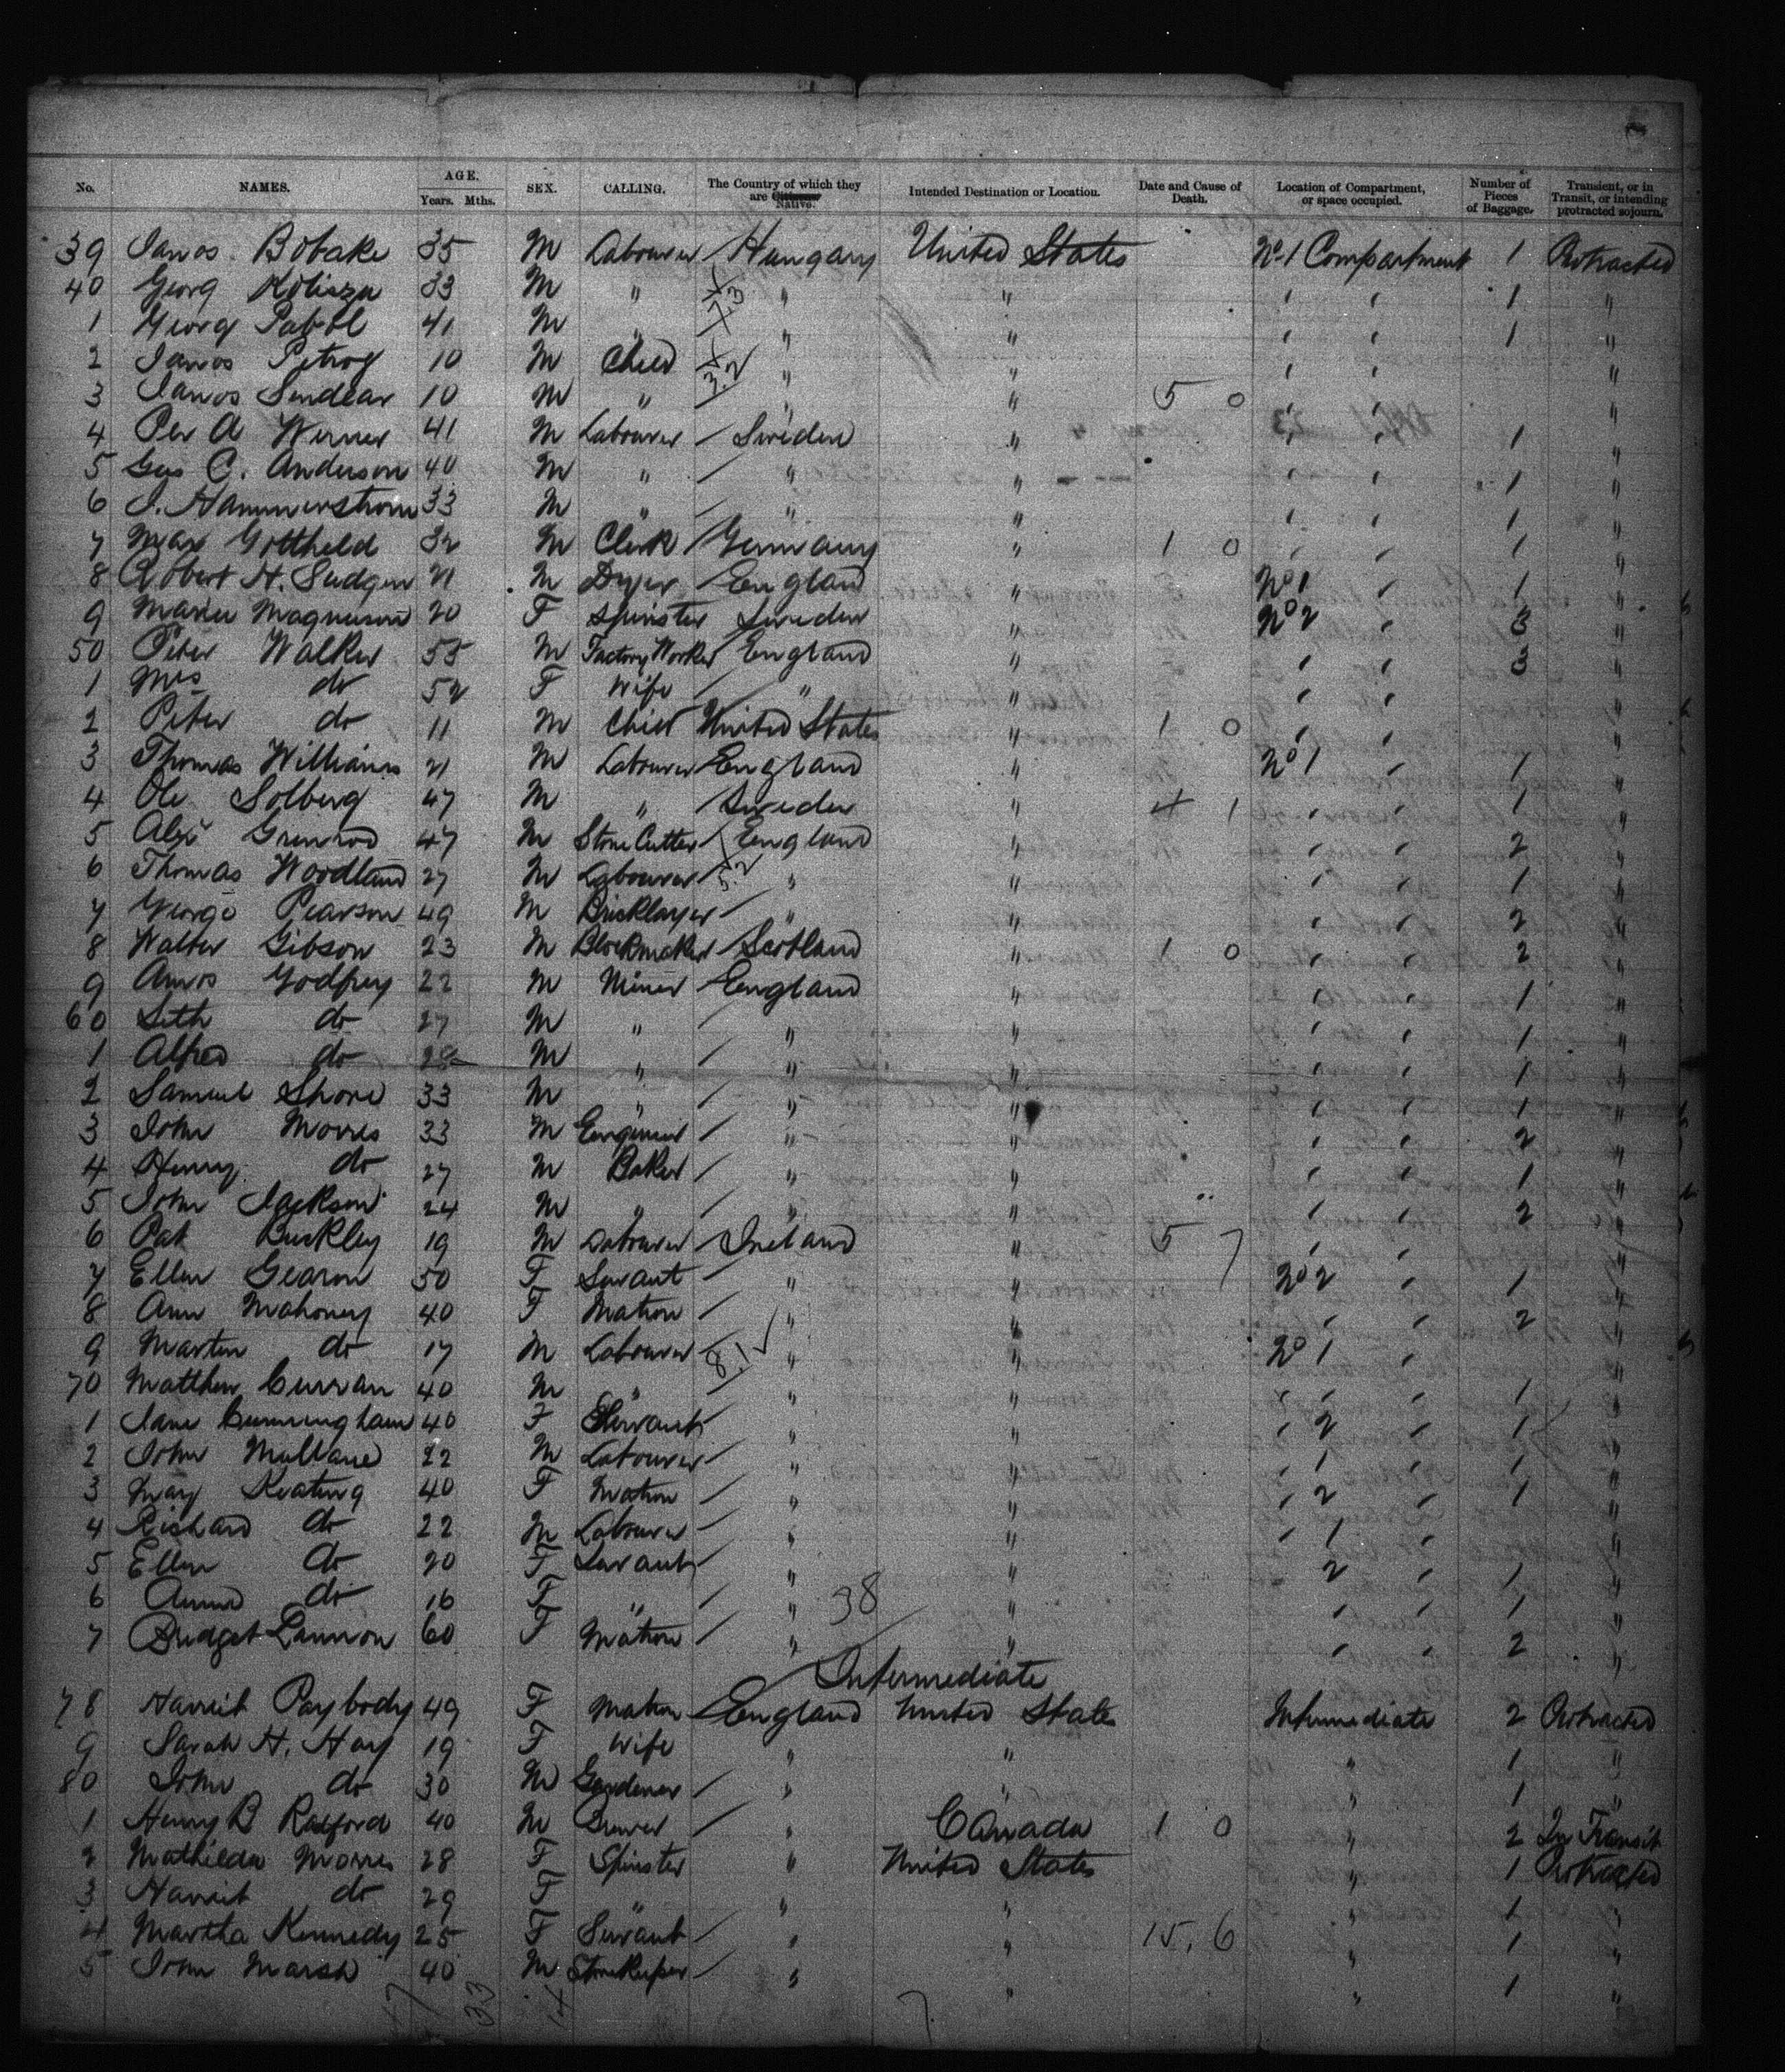 No. NAMES. AGE. Years. Mths. SEX. CALLING. The Country of which they are Citizens Native. Intended Destination or Location. Date and Cause of Death. Location of Compartment, or space occupied. Number of Pieces of Baggage. Transient, or in Transit, or intending protracted sojourn.
39 Janos Bobake 35 M Labourer / Hungary United States No 1 Compartment 1 Protracted
40 Georg 33 M " " " ' ' 1 "
1 Georg 41 M " " " ' ' 1 "
2 Janos Petroy 10 M Child " " ' ' "
3 Janos Sendlar 10 M " " " 5 0 ' ' "
4 Per A Werner 41 M Labourer / Sweden " ' ' 1 "
5 Gus C. Anderson 40 M " / " " ' ' 1 "
6 J. Hammerstrom 33 M " / " " ' ' 1 "
7 Max Gottheld 32 M Clerk / Germany " 1 0 ' ' 1 "
8 Robert H. Sudgen 21 M Dyer / England " No 1 ' 1 "
9 Maria Magnuson 20 F Spinster Sweden " No 2 ' 3 "
50 Peter Walker 55 M Factory Worker England " ' ' 3 "
1 Mrs do 52 F Wife / " " ' ' "
2 Peter do 11 M Child United States " 1 0 ' ' "
3 Thomas Williams 21 M Labourer England " No 1 ' 1 "
4 Ole Solberg 47 M " / Sweden " 4 1 ' ' 1 "
5 Alex Grimrod 47 M Stone Cutter / England " ' ' 2 "
6 Thomas Woodland 27 M Labourer / " " ' ' 1 "
7 George Pearson 49 M Bricklayer / " " ' ' 2 "
8 Walter Gibson 23 M Blockmaker / Scotland " 1 0 ' ' 2 "
9 Amos Godfrey 22 M Miner / England " ' ' 1 "
60 Seth do 27 M " / " " ' ' 1 "
1 Alfred do 28 M " / " " ' ' 1 "
2 Samuel Shore 33 M " / " " ' ' 1 "
3 John Morris 33 M Engineer / " " ' ' 2 "
4 Henry do 27 M Baker / " " ' ' 1 "
5 John Jackson 24 M " / " " ' ' 2 "
6 Pat Buckley 19 M Labourer / Ireland " 5 7 ' ' "
7 Ellen Gearon 50 F Servant / " " No 2 ' 1 "
8 Ann Mahoney 40 F Matron / " " ' ' 2 "
9 Martin do 17 M Labourer 8.1 ✓ " " No 1 ' "
70 Matthew Curran 40 M " / " " ' ' 1 "
1 Jane Cunningham 40 F Servant / " " ' 2 ' 1 "
2 John Mullane 22 M Labourer / " " ' 1 ' 1 "
3 Mary Keating 40 F Matron / " " ' 2 ' 1 "
4 Richard do 22 M Labourer / " " ' 1 ' "
5 Ellen do 20 F Servant / " " 2 ' 1 "
6 Anna do 16 F " / " 38 " ' ' 1 "
7 Bridget Lannon 60 F Matron / " " ' ' 2 "
Intermediate
78 Harriet Paybody 49 F Matron England United States Intermediate 2 Protracted
9 Sarah H. Hay 19 F Wife " " " 1 "
80 John do 30 M Gardener / " " " 1 "
1 Henry B Radford 40 M Brewer / " Canada 1 0 " 2 In Transit
2 Mathilda Morris 28 F Spinster " United States " 1 Protracted
3 Harriet do 29 F " " " " 1 "
4 Martha Kennedy 25 F Servant / " " 15. 6 " 1 "
5 John Marsh 40 M Storekeeper / " " " 1 "
47 33 14 7